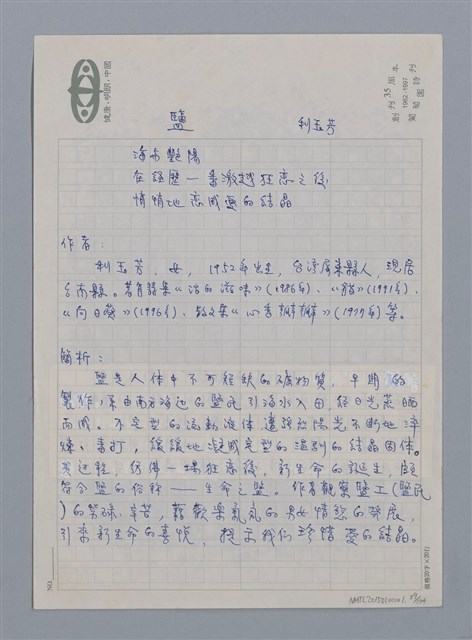 健康•明朗•中國
創刊35周年
1962-1997
葡萄園詩刊
鹽
利玉芳
海与艷陽
在經歷一番激越狂恋之後
悄悄地恋成愛的結晶
作者：
利玉芳，女，1952年出生，台湾屏東縣人，現居
台南縣。著有詩集《活的滋味》(1986年)、《貓》(1991年)、
《向日葵》(1996年)、散文集《心香瓣瓣》(1977年)等。
簡析：
鹽是人体中不可短缺的礦物質，早期的
製作，系由南方海边的鹽民引海水入田，經日光蒸晒
而成。不定型的流動液体遭強烈陽光不斷地淬
煉、責打，緩緩地凝成定型的 的結晶固体。
其过程，彷彿一場狂恋後，新生命的誕生，頗
符合鹽的俗称——生命之鹽。作者觀察鹽工(鹽民
)的勞碌、辛苦，藉歡樂氣氛的男女情慾的發展，
引來新生命的喜悅，提示我們珍惜愛的結晶。
NO.
規格20字×20行